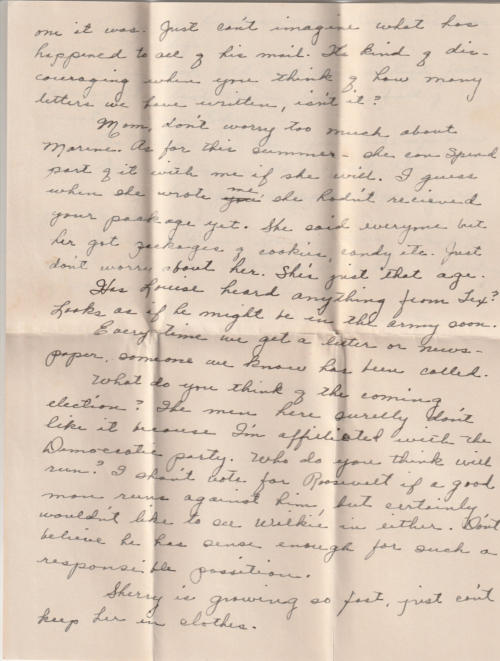 one it was. Just can't imagine what has
happened to all of his mail. Its kind of dis-
couraging when you think of how many
letters we have written, isn't it?
Mom, don't worry too much about
Maxine. As for this summer - she can spend
part of it with me if she will. I guess
when she wrote me she hadn't recieved
your package yet. She said everyone but
her got packages of cookies, candy etc. Just
don't worry about her. She's just that age.
Has Louise heard anything from Tex?
Looks as if he might be in the army soon.
Every time we get a letter or news-
paper, someone we know has been called.
What do you think of the coming
election? The men here surelly don't
like it because I'm affiliated with the
Democratic party. Who do you think will
run? I shan't vote for Roosevelt if a good
man runs against him, but certainly
wouldn't like to see Wilkie in either. Don't
believe he has sense enough for such a
responsible possition.
Sherry is growing so fast, just can't
keep her in clothes.